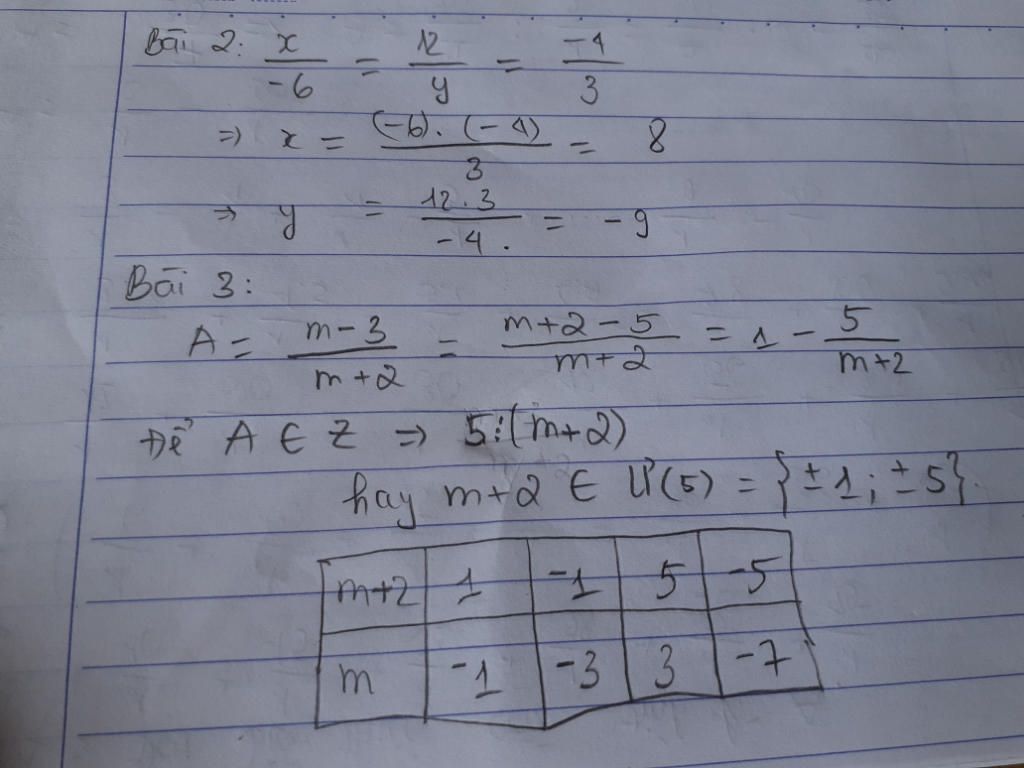 Bài 2: x/-6 = 12/y = -4/3
⇒ x = (-6).(-4)/3 = 8
⇒ y = 12.3/-4. = -9
Bài 3:
A = m-3/m+2 = m+2-5/m+2 = 1 - 5/m+2
Để A ∈ Z ⇒ 5⋮(m+2)
hay m+2 ∈ Ư(5) = {±1; ±5}.
m+2 1 -1 5 -5
m -1 -3 3 -7